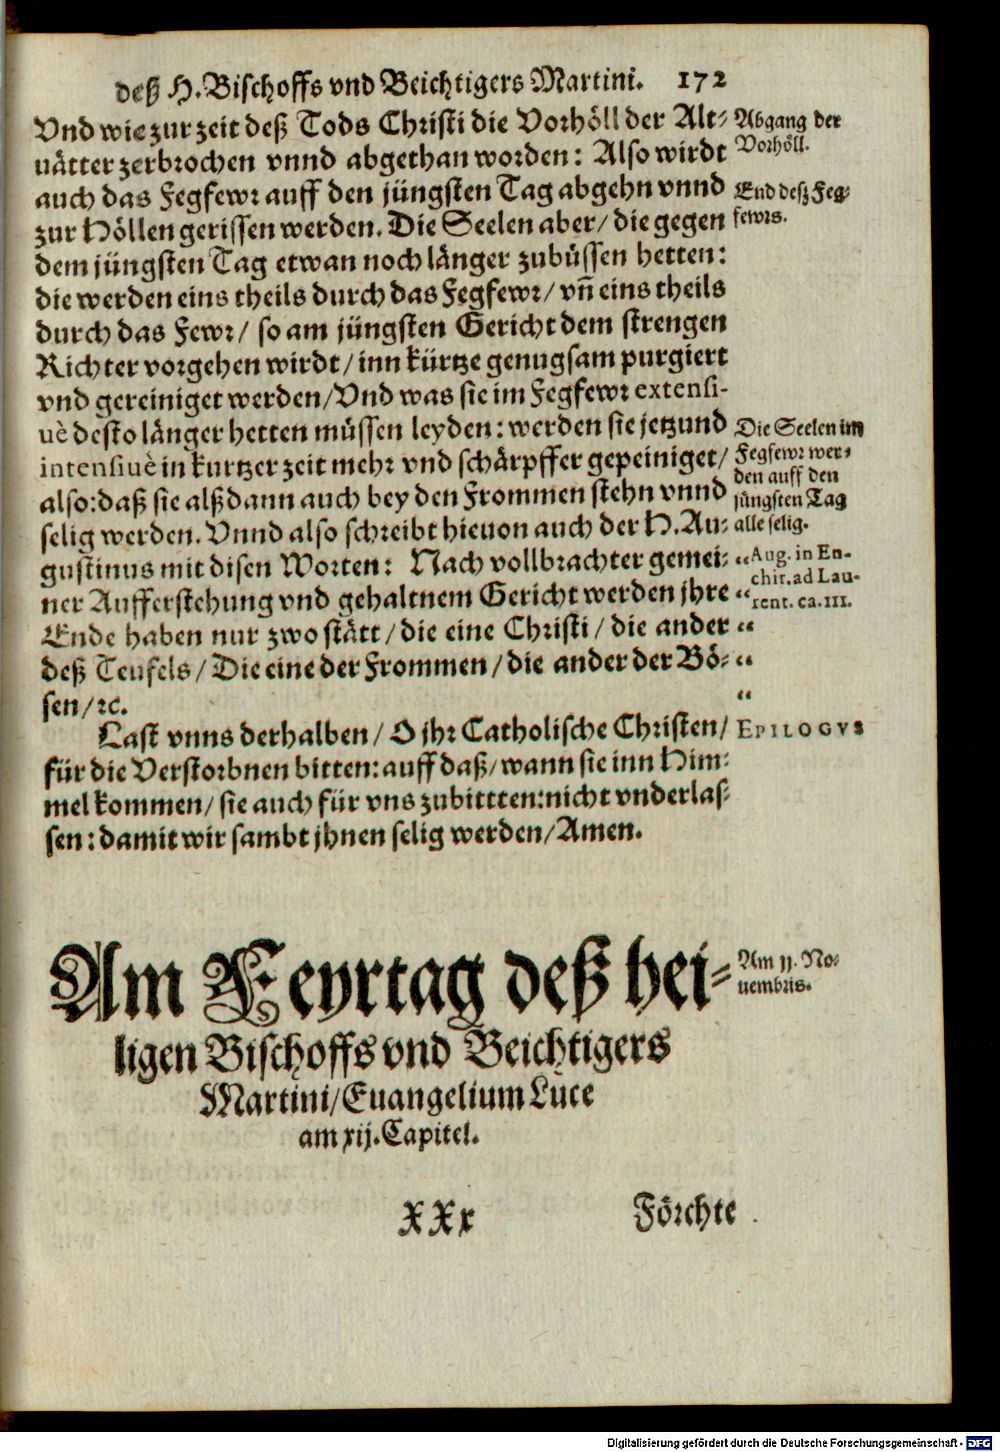 deß H. Bischoffs vnd Beichtigers Martini. 172
Vnd wie zur zeit deß Tods Christi die Vorhöll der Alt-
uätter zerbrochen vnnd abgethan worden: Also wirdt
auch das Fegfewr auff den jüngsten Tag abgehn vnnd
zur Höllen gerissen werden. Die Seelen aber/ die gegen
dem jüngsten Tag etwan noch länger zubüssen hetten:
die werden eins theils durch das Fegfewr/ vñ eins theils
durch das Fewr/ so am jüngsten Gericht dem strengen
Richter vorgehen wirdt/ inn kürtze genugsam purgiert
vnd gereiniget werden/ Vnd was sie im Fegfewr extensi-
uè desto länger hetten müssen leyden: werden sie jetzund
intensiuè in kurtzer zeit mehr vnd schärpffer gepeiniget/
also: daß sie alßdann auch bey den Frommen stehn vnnd
selig werden. Vnnd also schreibt hieuon auch der H. Au-
gustinus mit disen Worten: Nach vollbrachter gemei-
ner Aufferstehung vnd gehaltnem Gericht werden jhre
Ende haben nur zwo stätt/ die eine Christi/ die ander
deß Teufels/ Die eine der Frommen/ die ander der Bö-
sen/ ꝛc.
Last vnns derhalben/ O jhr Catholische Christen/
für die Verstorbnen bitten: auff daß/ wann sie inn Him-
mel kommen/ sie auch für vns zubittten: nicht vnderlas-
sen: damit wir sambt jhnen selig werden/ Amen.
Abgang der
Vorhöll.
End deß Feg-
fewrs.
Die Seelen im
Fegfewr wer-
den auff den
jüngsten Tag
alle selig.
“Aug. in En-
chir. ad Lau-
“rent. ca. 111.
“
“
“
EPILOGVS
Am Feyrtag deß hei-
ligen Bischoffs vnd Beichtigers
Martini/ Euangelium Luce
am xij. Capitel.
Am 11. No-
uembris.
XXx Förchte
Digitalisierung gefördert durch die Deutsche Forschungsgemeinschaft - DFG